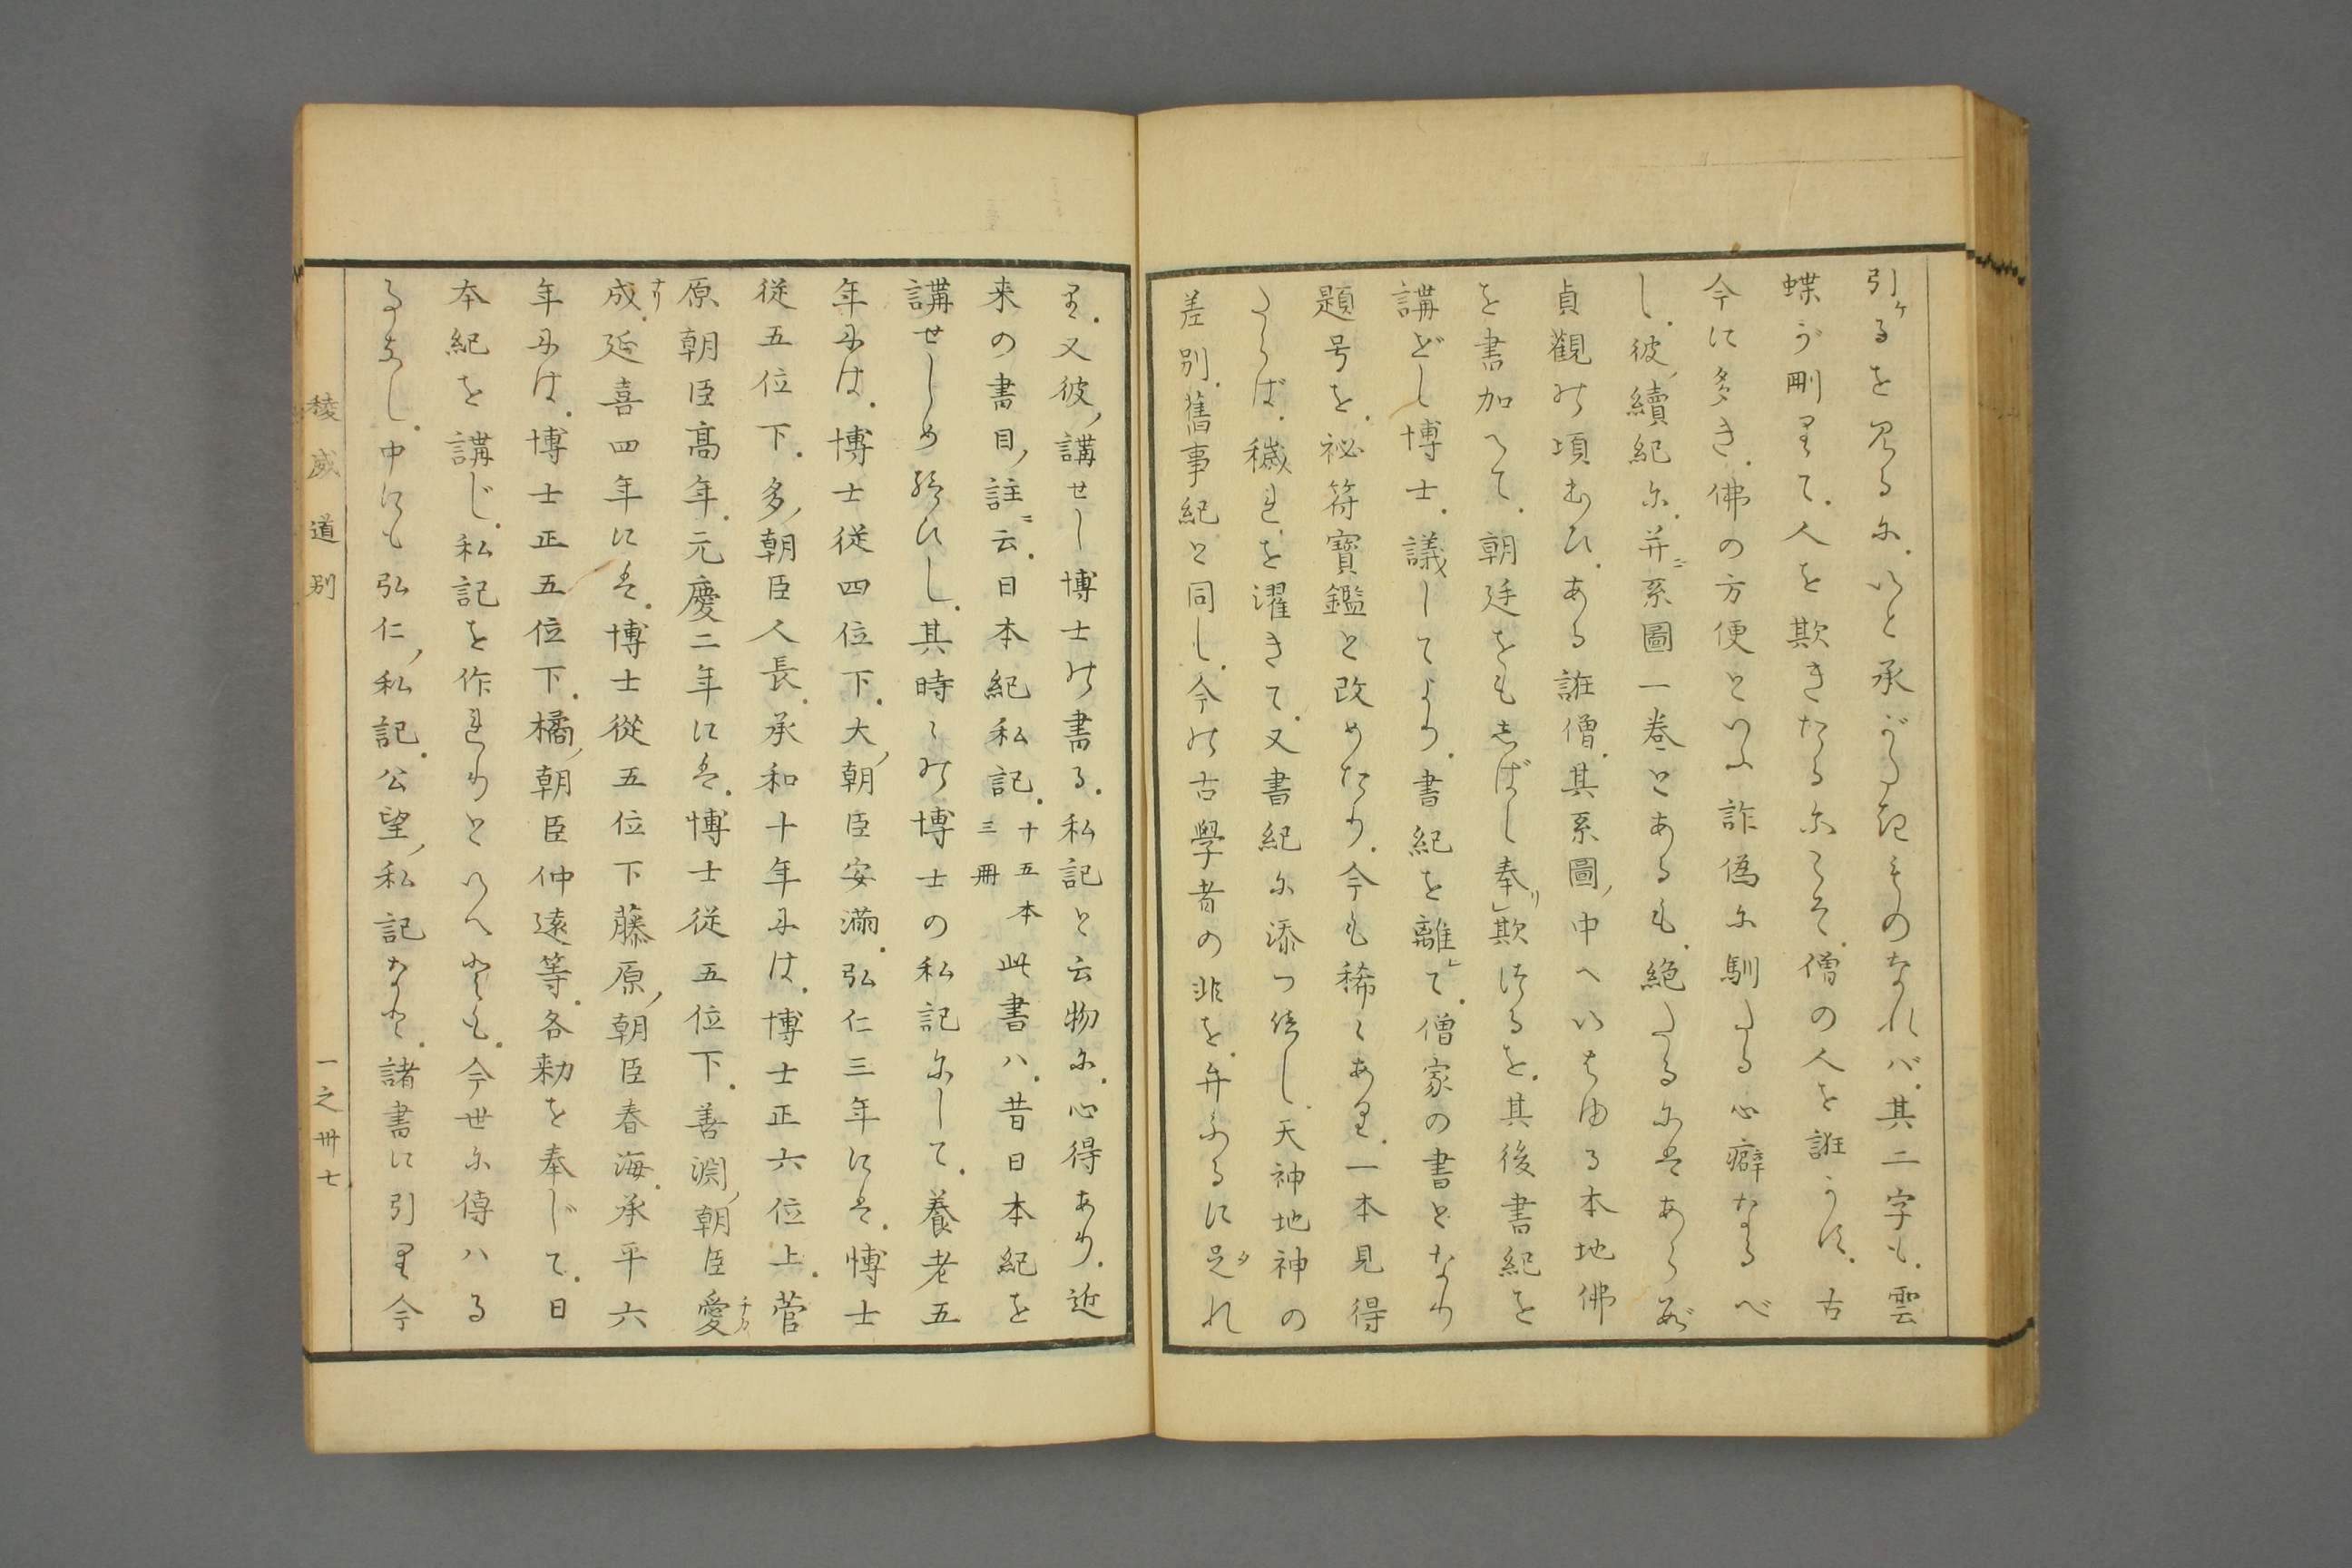 引ケるを見るに。いと承がたきものなれバ。其二字も。雲
蝶が剛りて。人を欺きたるにこそ。僧の人を誑うは。古
今に多き。佛の方便といふ詐偽に馴たる心癖なるべ
し。彼,續紀に。并ニ系圖一巻とあるも。絶たるにはあらで
貞觀の頃おひ。ある誑僧。其系圖,中へいはゆる本地佛
を書加へて。朝廷をもしばし奉リ欺けるを。其後書紀を
講どし博士。議してより。書紀を離レて。僧家の書となり
題号を。祕符寶鑑と改めたり。今も稀にあり。一本見得
たらば。穢れを濯きて。又書紀に添つ侍し。天神地神の
差別。舊事紀と同し。今の古學者の非を。弁ふるに足タれ
り。又彼,講せし博士の書る。私記と云物に。心得あり。近
来の書目,註ニ云。日本紀私記。十五本三冊此書ハ。昔日本紀を
講せしめ給ひし。其時々の博士の私記にして。養老五
年には。博士従四位下。大,朝臣安滿。弘仁三年には。博士
従五位下。多,朝臣人長。承和十年には。博士正六位上。菅
原朝臣高年。元慶二年には。博士従五位下。善淵,朝臣愛チカ
成ナリ。延喜四年には。博士従五位下藤原,朝臣春海。承平六
年には。博士正五位下。橘,朝臣仲遠等。各勅を奉じて。日
本紀を講じ。私記を作れりといへども。今世に傳ハる
事なし。中にも弘仁,私記。公望,私記など。諸書に引り今
稜威道別
一之卅七